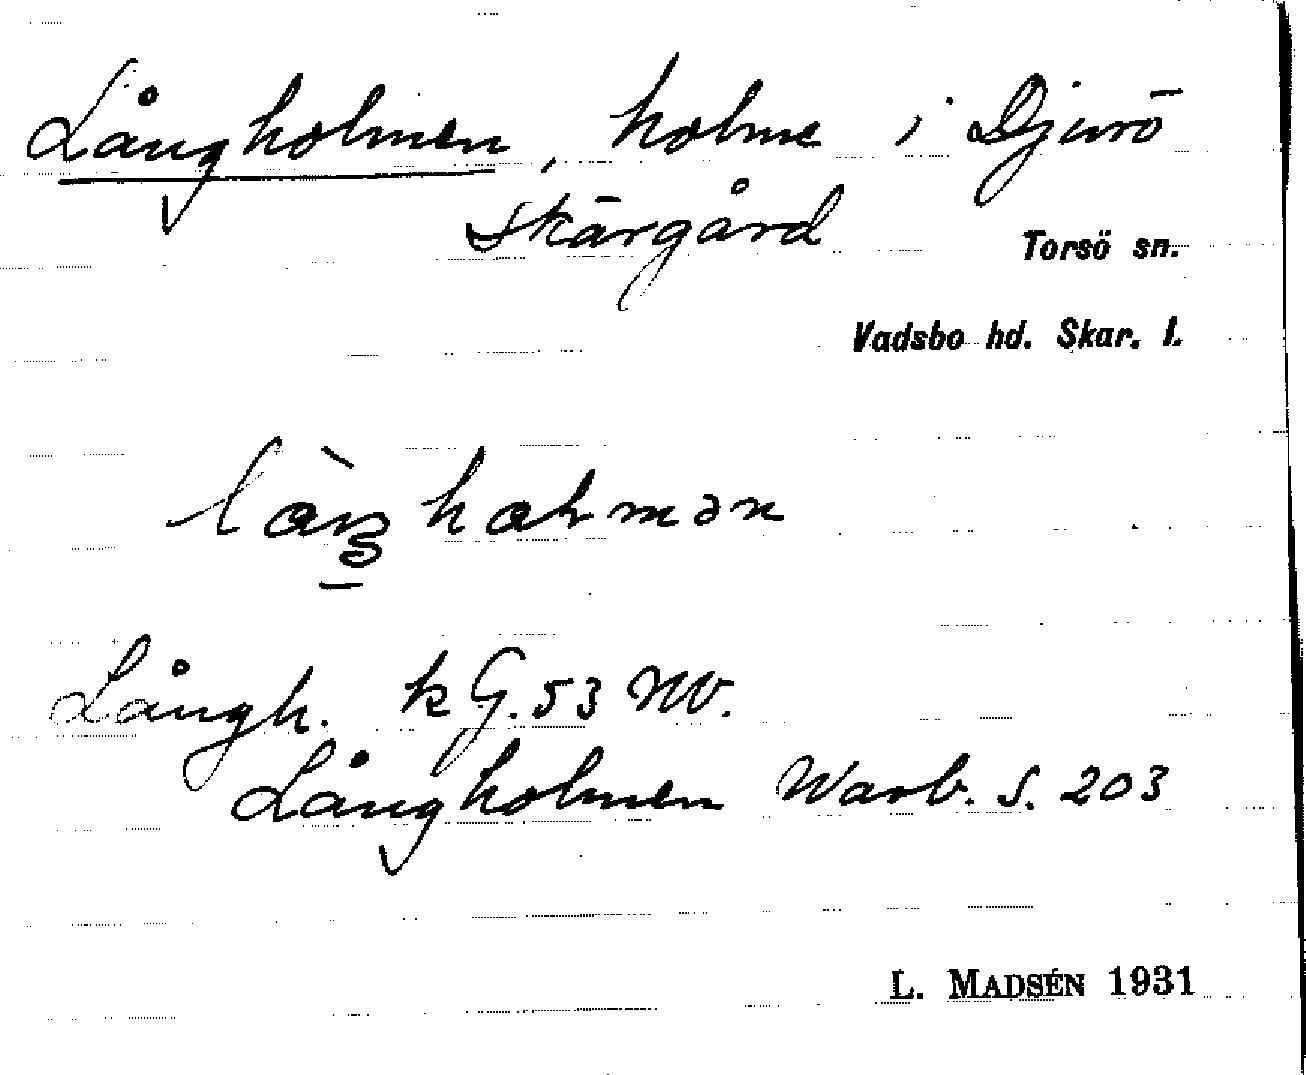 Långholmen, holme i Djurö
skärgård
Torsö sn.
Vadsbo hd. Skar. l.
Långh. k G. 53 NV.
Långholmen Warb. S. 203
L. MADSÉN 1931